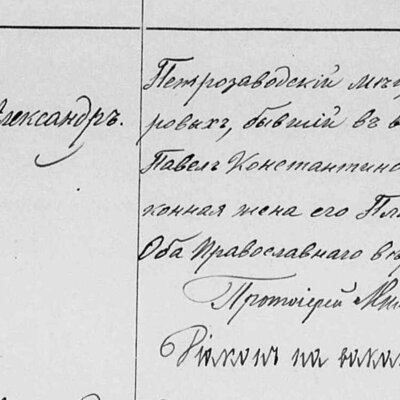 Александръ.
Петрозаводскій мѣщ
ровыхъ, бывшій въ в
Павелъ Константино
конная жена его Пл
Оба Православнаго вѣ
Протоіерей Ми
Діаконъ на вака